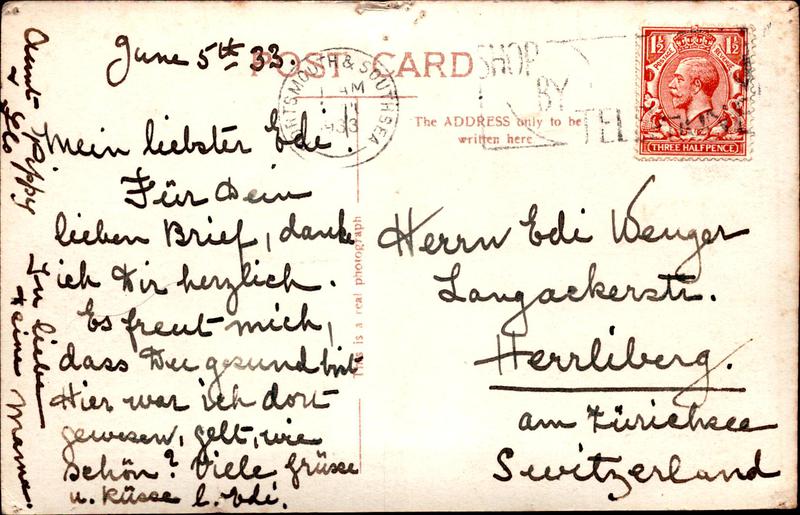 June 5th 33.
POST CARD
PORTSMOUTH & SOUTHSEA
AM
1933
SHOP
BY
TEL
1½ 1½
POSTAGE REVENUE
THREE HALFPENCE
The ADDRESS only to be
written here
This is a real photograph
Mein liebster Edi.
Für Dein
lieben Brief, danke
ich Dir herzlich.
Es freut mich,
dass Du gesund bist
Hier war ich dort
gewesen, gelt, wie
schön? Viele Grüsse
u. Küsse l. Edi.
In liebe
Deine Mama.
Aunt Pippy
Flo
Herrn Edi Wenger
Langackerstr.
Herrliberg.
am Zürichsee
Switzerland